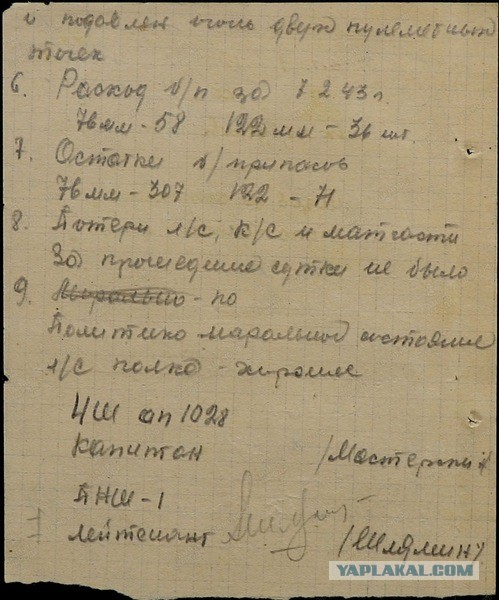 и подавлен огонь двух пулеметных
точек
6. Расход б/п за 7 2 43 г.
76 мм - 58 122 мм - 36 шт.
7. Остатки б/припасов
76 мм - 307 122 - 71
8. Потери л/с, к/с и матчасти
За прошедшие сутки не было
9. Морально - по
Политико маральное состояние
л/с полка - хорошее
НШ ап 1028
капитан /Мастерки
ПНШ-1
лейтенант /Шлямин/
YAPLAKAL.COM